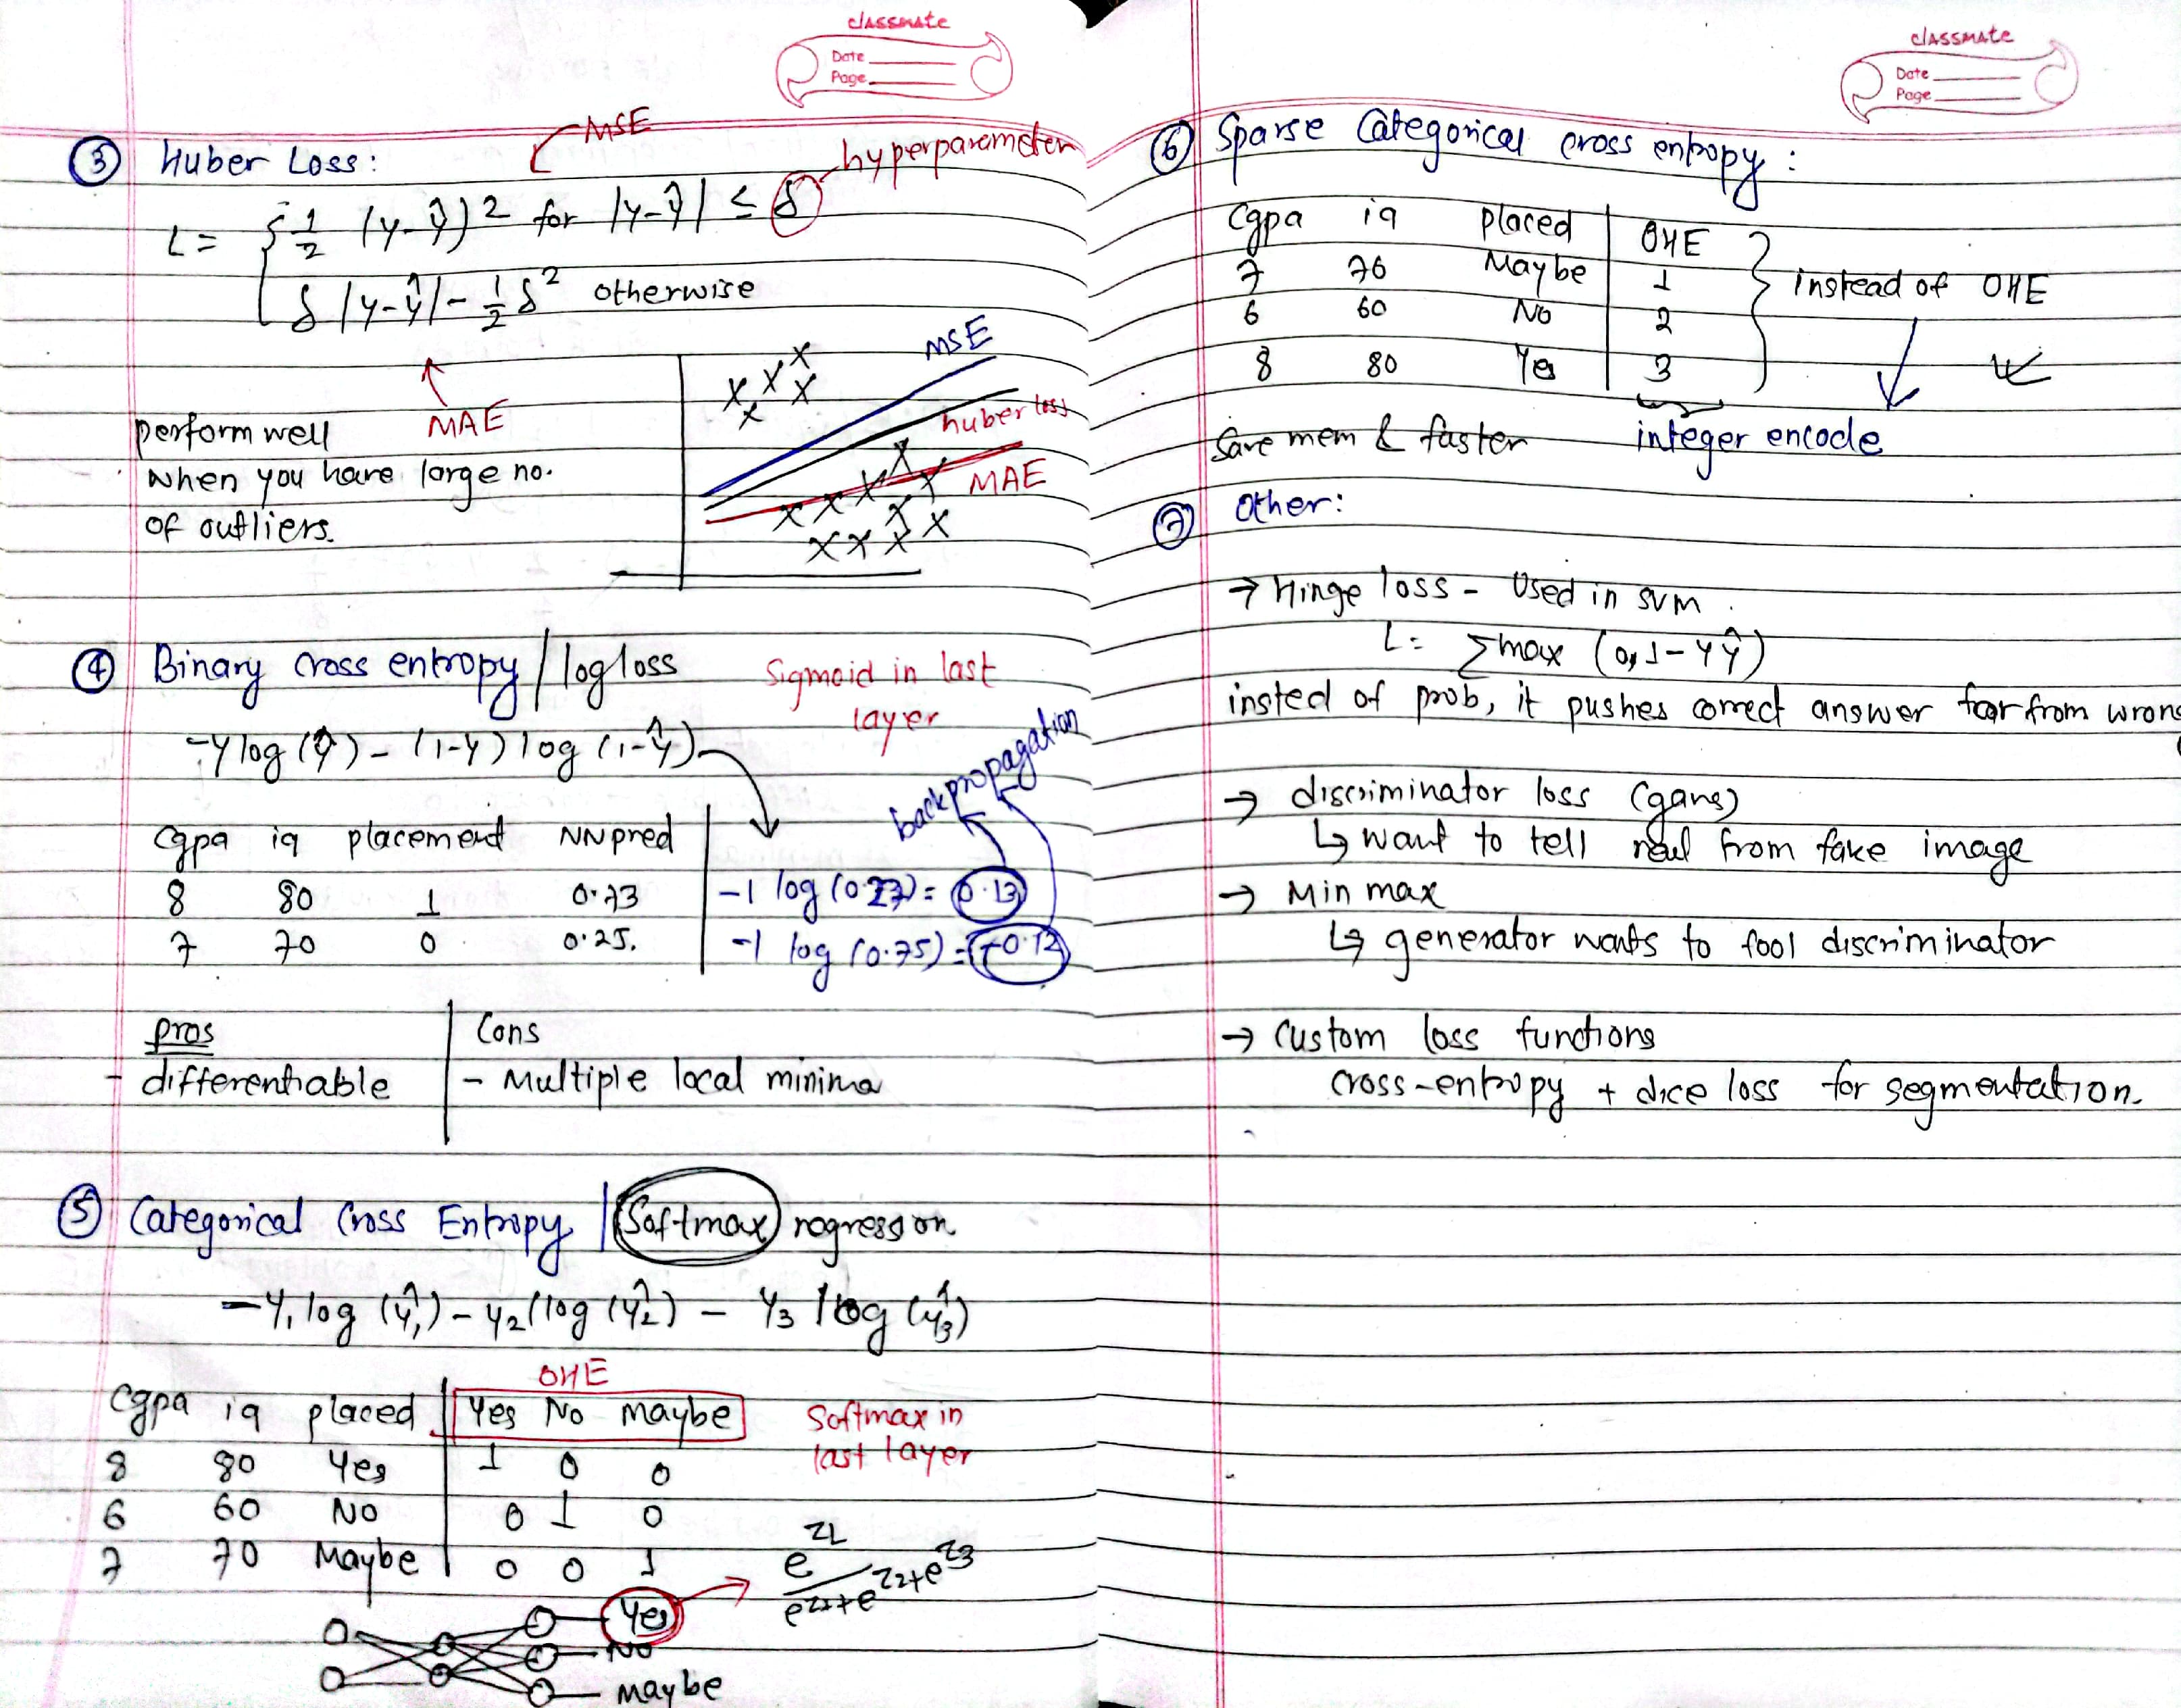 classmate
Date
Page
③ Huber Loss:
MSE
hyperparameter
L = { 1/2 (y-ŷ)² for |y-ŷ| ≤ δ
δ |y-ŷ| - 1/2 δ² otherwise
MAE
perform well
when you have large no.
of outliers.
MSE
huber loss
MAE
④ Binary cross entropy / log loss
Sigmoid in last
layer
-y log (ŷ) - (1-y) log (1-ŷ)
backpropagation
cgpa iq placement NN pred
8 80 1 0.73 -1 log (0.73) = 0.13
7 70 0 0.25. -1 log (0.75) = +0.12
pros Cons
- differentiable - Multiple local minima
⑤ Categorical Cross Entropy / Softmax regression
-y₁ log (ŷ₁) - y₂ (log (ŷ₂) - y₃ log (ŷ₃)
OHE
cgpa iq placed Yes No Maybe
Softmax in
last layer
8 80 Yes 1 0 0
6 60 No 0 1 0
7 70 Maybe 0 0 1
Yes
No
Maybe
e^z1
e^z1+e^z2+e^z3
classmate
Date
Page
⑥ Sparse Categorical cross entropy :
Cgpa iq placed OHE
7 76 Maybe 1
6 60 No 2
8 80 Yes 3
instead of OHE
Save mem & faster integer encode
⑦ Other:
→ Hinge loss - Used in svm.
L = Σmax (0, 1-yŷ)
insted of prob, it pushes correct answer far from wrong
→ discriminator loss (gans)
↳ want to tell real from fake image
→ Min max
↳ generator wants to fool discriminator
→ custom loss functions
cross-entropy + dice loss for segmentation.